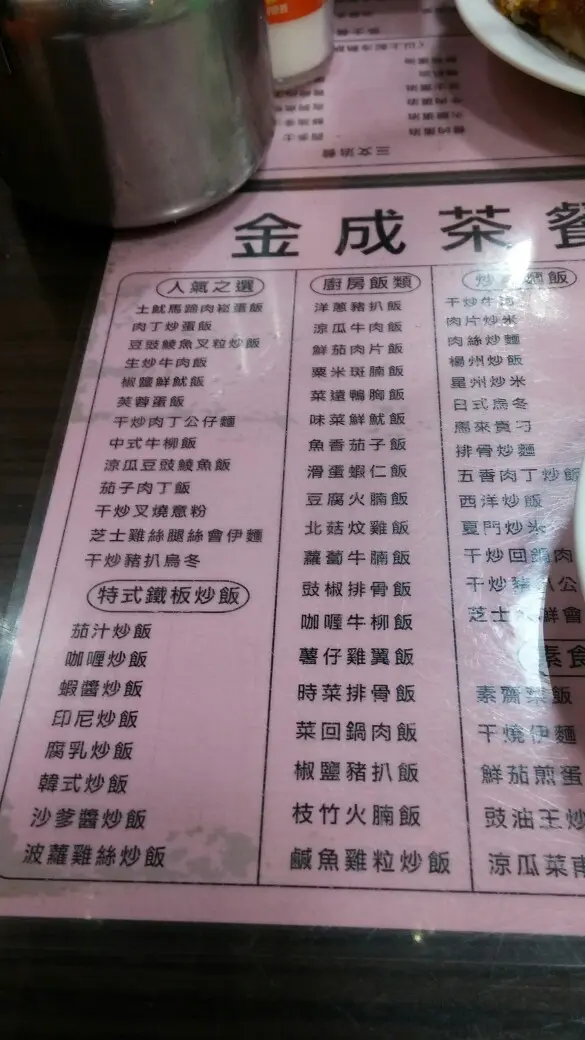 三文治餐
金成茶餐
人氣之選
土魷馬蹄肉崧蛋飯
肉丁炒蛋飯
豆豉鯪魚叉粒炒飯
生炒牛肉飯
椒鹽鮮魷飯
芙蓉蛋飯
干炒肉丁公仔麵
中式牛柳飯
涼瓜豆豉鯪魚飯
茄子肉丁飯
干炒叉燒意粉
芝士雞絲腿絲會伊麵
干炒豬扒烏冬
特式鐵板炒飯
茄汁炒飯
咖喱炒飯
蝦醬炒飯
印尼炒飯
腐乳炒飯
韓式炒飯
沙爹醬炒飯
波蘿雞絲炒飯
廚房飯類
洋蔥豬扒飯
涼瓜牛肉飯
鮮茄肉片飯
粟米斑腩飯
菜遠鴨胸飯
味菜鮮魷飯
魚香茄子飯
滑蛋蝦仁飯
豆腐火腩飯
北菇炆雞飯
蘿蔔牛腩飯
豉椒排骨飯
咖喱牛柳飯
薯仔雞翼飯
時菜排骨飯
菜回鍋肉飯
椒鹽豬扒飯
枝竹火腩飯
鹹魚雞粒炒飯
飯
干炒牛
肉片炒米
肉絲炒麵
楊州炒飯
星州炒米
日式烏冬
馬來貴刁
排骨炒麵
五香肉丁炒飯
西洋炒飯
夏門炒米
干炒回鍋肉
干炒豬扒公
芝士 鮮會
素食
素齋菜飯
干燒伊麵
鮮茄煎蛋
豉油王炒
涼瓜菜甫